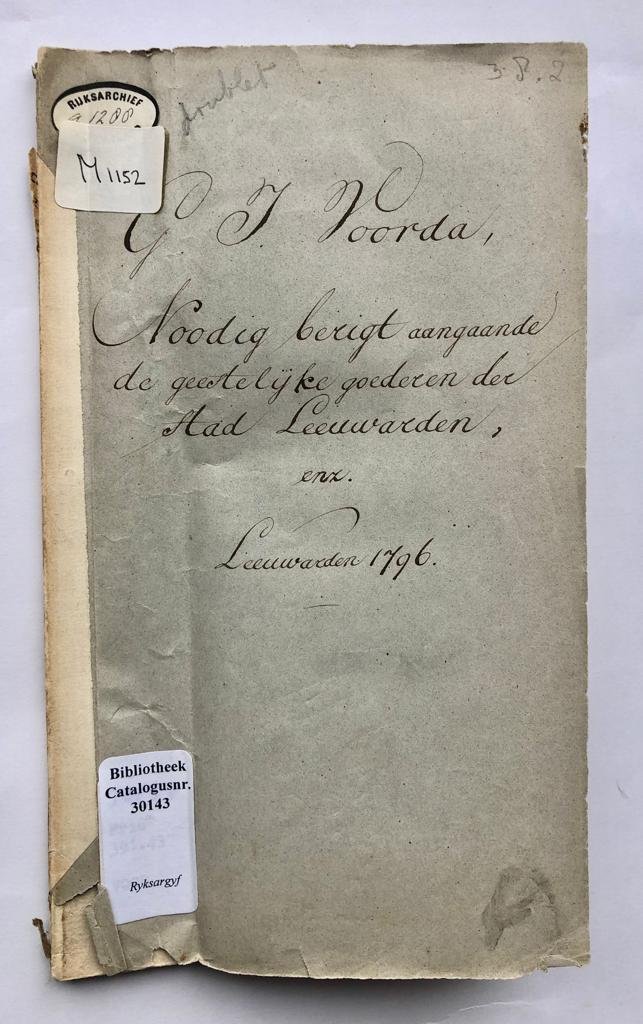 RIJKSARCHIEF
a 1288
M 1152
doublet
3 8. 2
G J Voorda,
Noodig berigt aangaande
de geestelijke goederen der
Stad Leeuwarden,
enz.
Leeuwarden 1796.
Bibliotheek
Catalogusnr.
30143
Ryksargyf